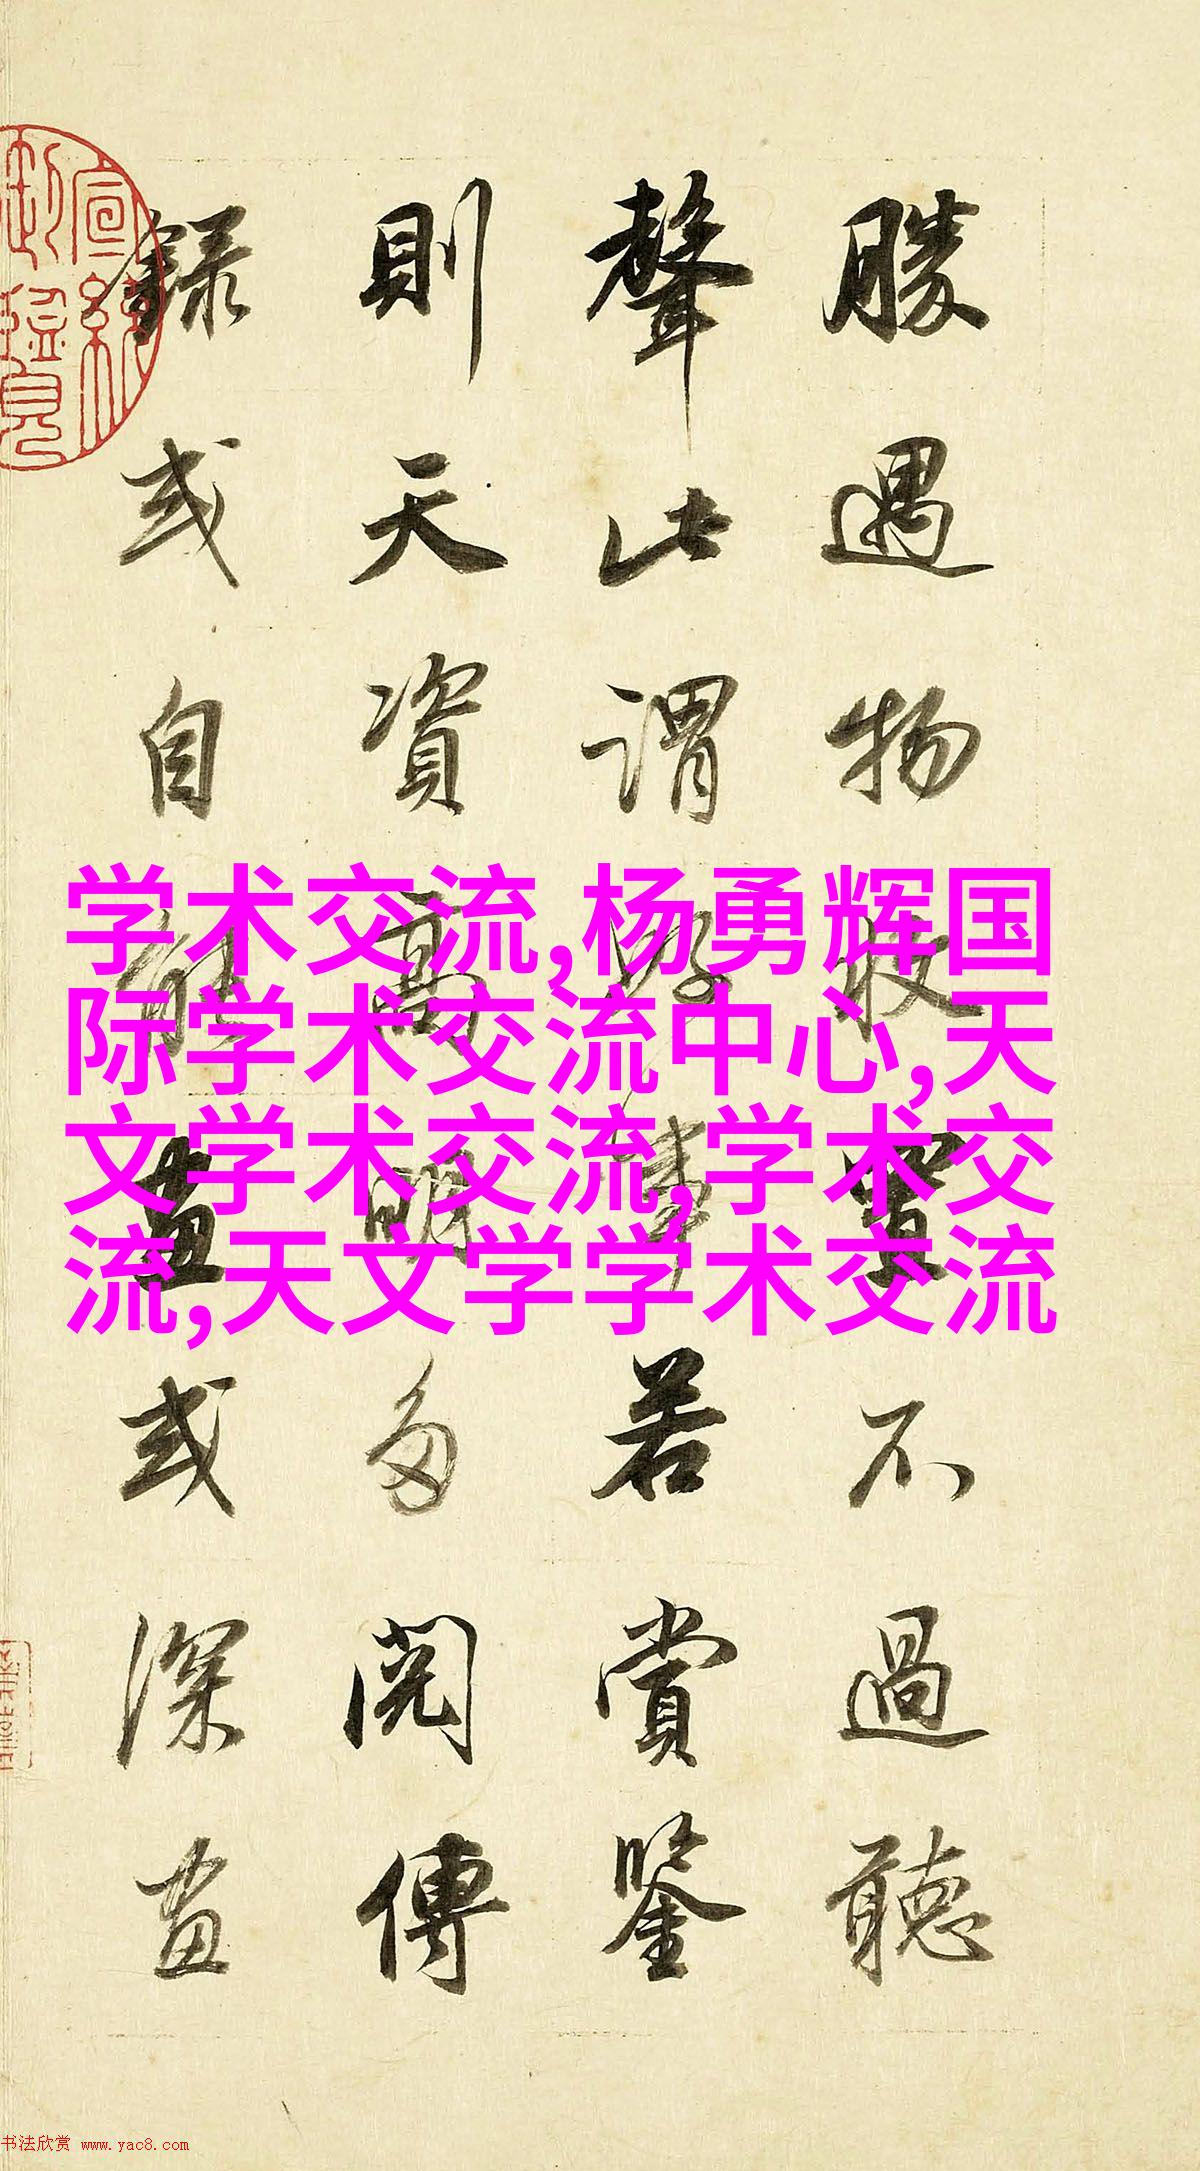 勝遇物收置不過聽
聲此謂好事若賞鑒
則天資高明多閱傳
錄或自能畫或深畫
宣統
学术交流,杨勇辉国
际学术交流中心,天
文学术交流,学术交
流,天文学学术交流
书法欣赏 www.yac8.com